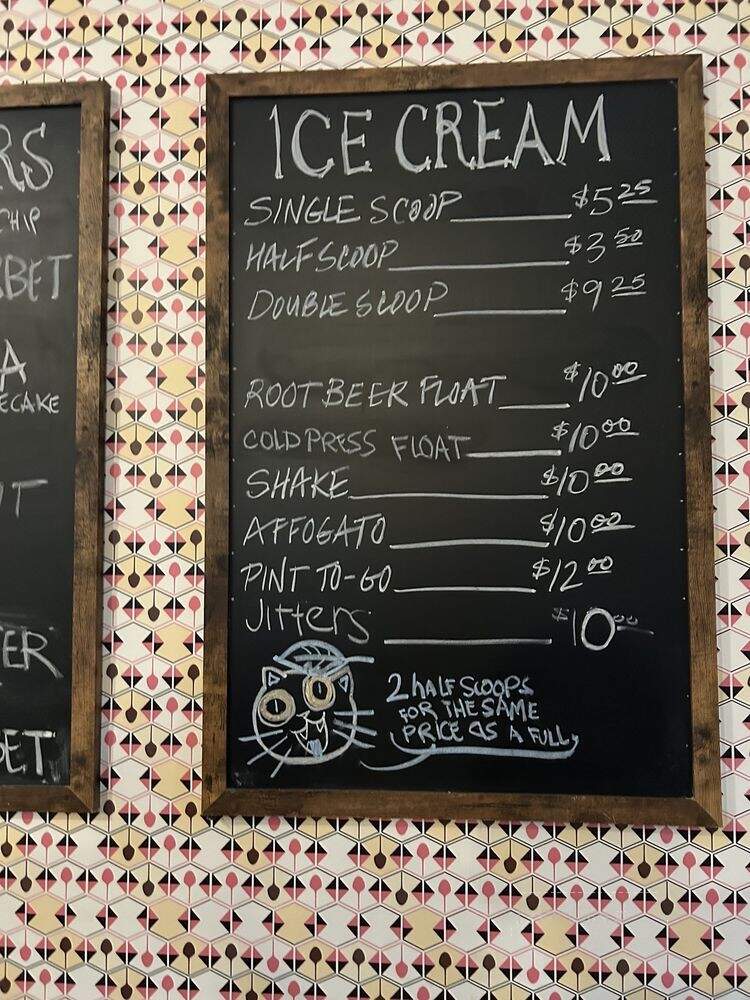 RS
CHIP
BET
A
ECAKE
IT
ER
BET
ICE CREAM
SINGLE SCOOP $5 25
HALF SCOOP $3 50
DOUBLE SCOOP $9 25
ROOT BEER FLOAT $10 00
COLD PRESS FLOAT $10 00
SHAKE $10 00
AFFOGATO $10 00
PINT TO-GO $12 00
Jitters $10 00
2 HALF SCOOPS
FOR THE SAME
PRICE AS A FULL